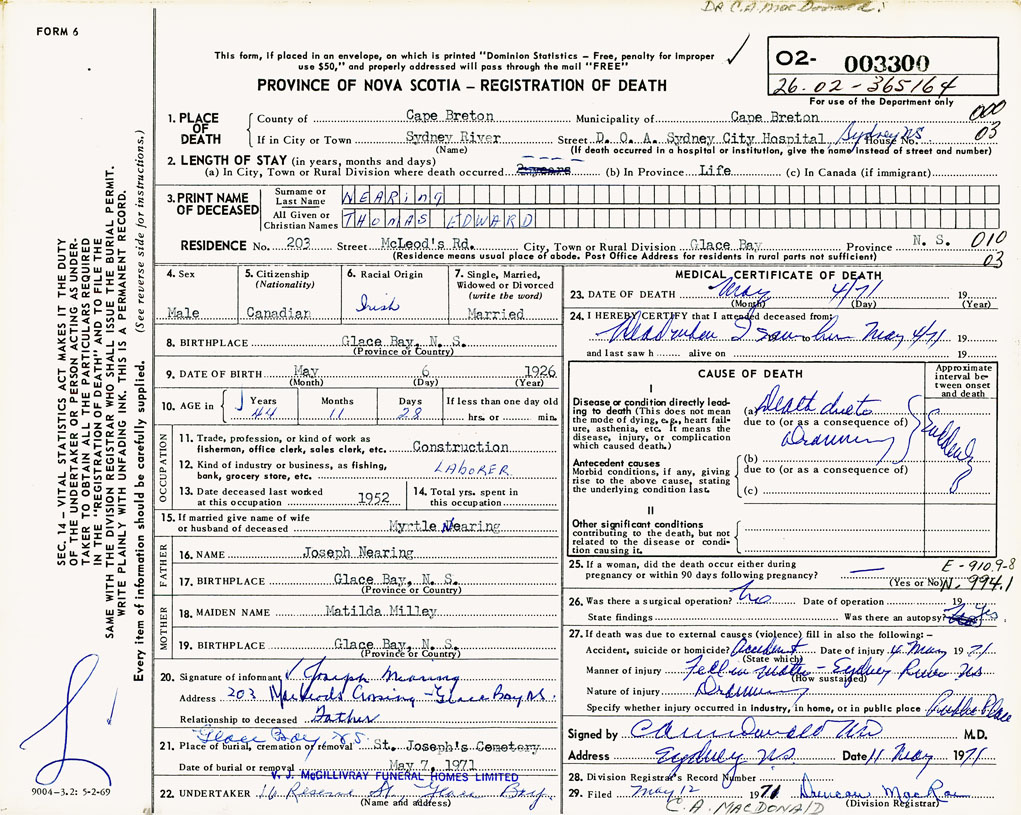 DR C.A. MacDonald.
FORM 6
This form, if placed in an envelope, on which is printed "Dominion Statistics – Free, penalty for improper
use $50," and properly addressed will pass through the mail "FREE"
PROVINCE OF NOVA SCOTIA – REGISTRATION OF DEATH
02- 003300
26.02-365164
For use of the Department only
000
03
1. PLACE OF DEATH
County of Cape Breton Municipality of Cape Breton
If in City or Town Sydney River Street D. O. A. Sydney City Hospital House No. Sydney NS
(Name) (If death occurred in a hospital or institution, give the name instead of street and number)
2. LENGTH OF STAY (in years, months and days)
(a) In City, Town or Rural Division where death occurred (b) In Province Life (c) In Canada (if immigrant)
3. PRINT NAME OF DECEASED
Surname or Last Name NEARING
All Given or Christian Names THOMAS EDWARD
RESIDENCE No. 203 Street McLeod's Rd. City, Town or Rural Division Glace Bay Province N. S. 010
(Residence means usual place of abode. Post Office Address for residents in rural parts not sufficient) 03
4. Sex
Male
5. Citizenship
(Nationality)
Canadian
6. Racial Origin
Irish
7. Single, Married,
Widowed or Divorced
(write the word)
Married
8. BIRTHPLACE Glace Bay, N. S.
(Province or Country)
9. DATE OF BIRTH May 6 1926
(Month) (Day) (Year)
10. AGE in Years Months Days If less than one day old
44 11 28 hrs. or min.
OCCUPATION
11. Trade, profession, or kind of work as
fisherman, office clerk, sales clerk, etc. Construction
12. Kind of industry or business, as fishing,
bank, grocery store, etc. LABORER
13. Date deceased last worked
at this occupation 1952
14. Total yrs. spent in
this occupation
15. If married give name of wife
or husband of deceased Myrtle Nearing
FATHER
16. NAME Joseph Nearing
17. BIRTHPLACE Glace Bay, N. S.
(Province or Country)
MOTHER
18. MAIDEN NAME Matilda Milley
19. BIRTHPLACE Glace Bay, N. S.
(Province or Country)
20. Signature of informant Joseph Nearing
Address 203 MacLeods Crossing - Glace Bay NS.
Relationship to deceased Father
Glace Bay N.S.
21. Place of burial, cremation or removal St. Joseph's Cemetery
Date of burial or removal May 7, 1971
V. J. McGILLIVRAY FUNERAL HOMES LIMITED
22. UNDERTAKER 16 Reserve St. Glace Bay.
(Name and address)
MEDICAL CERTIFICATE OF DEATH
23. DATE OF DEATH May 4/71 19
(Month) (Day) (Year)
24. I HEREBY CERTIFY that I attended deceased from:
Dead when I saw him May 4/71 to 19
and last saw h alive on 19
CAUSE OF DEATH
Approximate
interval be-
tween onset
and death
I
Disease or condition directly lead-
ing to death (This does not mean
the mode of dying, e.g., heart fail-
ure, asthenia, etc. It means the
disease, injury, or complication
which caused death.)
(a) Death due to
due to (or as a consequence of)
Drowning
Suddenly
Antecedent causes
Morbid conditions, if any, giving
rise to the above cause, stating
the underlying condition last.
(b)
due to (or as a consequence of)
(c)
II
Other significant conditions
contributing to the death, but not
related to the disease or condi-
tion causing it.
25. If a woman, did the death occur either during
pregnancy or within 90 days following pregnancy? —
(Yes or No)
E - 910.9-8
N. 994.1
26. Was there a surgical operation? No Date of operation 19
State findings Was there an autopsy? Yes
27. If death was due to external causes (violence) fill in also the following:–
Accident, suicide or homicide? Accident Date of injury 4 May 1971
(State which)
Manner of injury Fell in water - Sydney River NS
(How sustained)
Nature of injury Drowning
Specify whether injury occurred in industry, in home, or in public place Public Place
Signed by C A MacDonald MD M.D.
Address Sydney N.S. Date 11 May 1971
28. Division Registrar's Record Number
29. Filed May 12 1971 Duncan MacRae
(Division Registrar)
C. A. MACDONALD
SEC. 14 – VITAL STATISTICS ACT MAKES IT THE DUTY
OF THE UNDERTAKER OR PERSON ACTING AS UNDER-
TAKER TO OBTAIN ALL THE PARTICULARS REQUIRED
IN THE "REGISTRATION OF DEATH" AND TO FILE THE
SAME WITH THE DIVISION REGISTRAR WHO SHALL ISSUE THE BURIAL PERMIT.
WRITE PLAINLY WITH UNFADING INK. THIS IS A PERMANENT RECORD.
Every item of information should be carefully supplied. (See reverse side for instructions.)
9004–3.2: 5-2-69